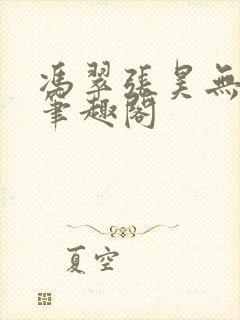 馮翠張昊無
筆趣閣
夏空